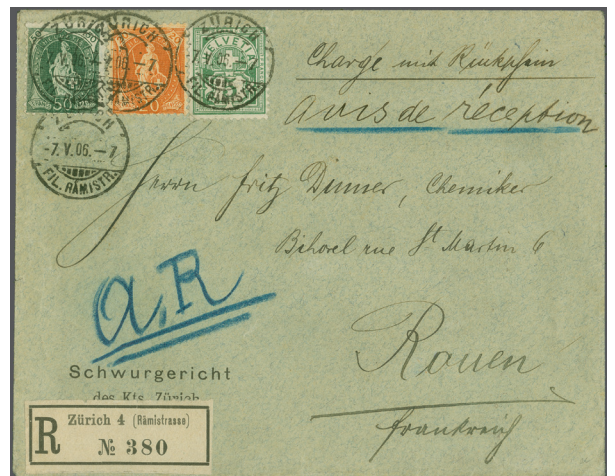 ZÜRICH
ZÜRICH
-7.V.06.-7
FIL. RÄMISTR.
50
20
HELVETIA
5
ZÜRICH
-7.V.06.-7
FIL. RÄMISTR.
Chargé mit Rückschein
Avis de réception
Herrn Fritz Dinner, Chemiker
Bihorel rue St Martin 6
a.R
Rouen
Frankreich
Schwurgericht
des Kts. Zürich
R
Zürich 4 (Rämistrasse)
№ 380